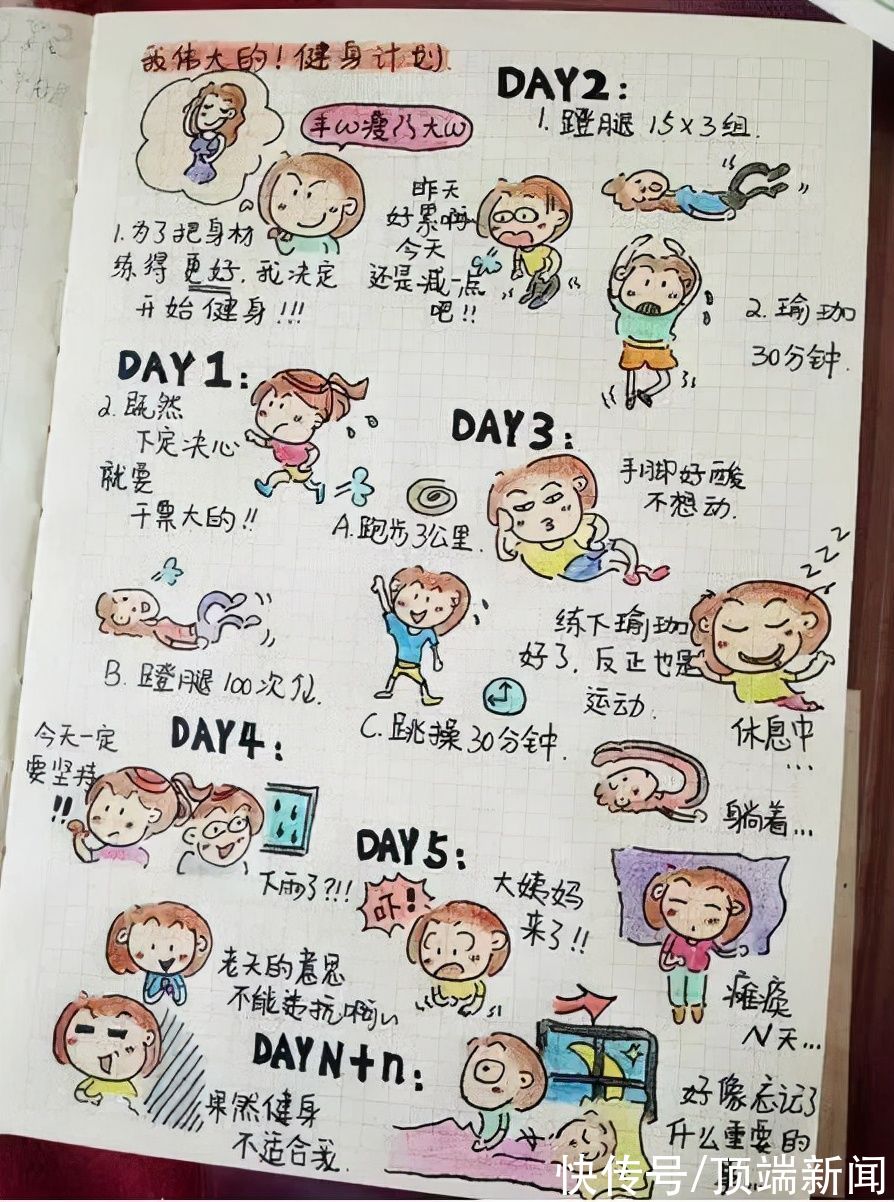 我伟大的！健身计划.
丰ω瘦乃大ω
1.为了把身材
练得更好.我决定
开始健身!!!
DAY1:
2.既然
下定决心
就要
干票大的!!
A.跑步3公里.
B.蹬腿100次
C.跳操30分钟.
DAY2:
1.蹬腿 15×3组.
昨天
好累啊
今天
还是减一点
吧!!
2.瑜珈
30分钟.
DAY3:
手脚好酸
不想动.
练下瑜珈
好了.反正也是
运动.
zzz
休息中
...
身躺着...
DAY4:
今天一定
要坚持
!!
下雨了?!!
老天的意思
不能违抗啊
果然健身
不适合我.
DAY5:
吓!
大姨妈
来了!!
瘫痪
N天...
DAYN+n:
好像忘记了
什么重要的
快传号/顶端新闻